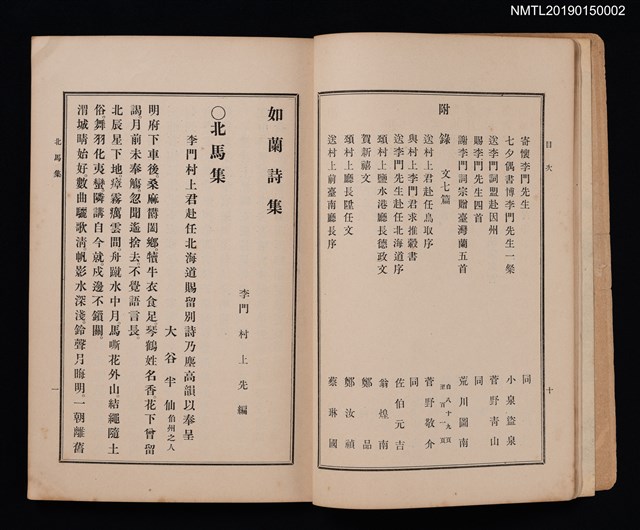 NMTL20190150002
目次
十
寄懷李門先生
同
七夕偶書博李門先生一粲
小泉盜泉
送李門詞盟赴因州
菅野青山
賜李門先生四首
同
謝李門詞宗贈臺灣蘭五首
荒川圖南
附錄 文七篇
自八十九頁
至百一頁
送村上君赴任鳥取序
菅野敬介
與村上李門君求推轂書
同
送李門先生赴任北海道序
佐伯元吉
頌村上鹽水港廳長德政文
翁煌南
賀新禧文
鄭品
頌村上廳長陞任文
鄭汝禎
送村上前臺南廳長序
蔡琳國
如蘭詩集
李門村上先編
〇北馬集
李門村上君赴任北海道賜留別詩乃塵高韻以奉呈
大谷半仙 伯州之人
明府下車後、桑麻欝閭鄉、犢牛衣食足、琴鶴姓名香、花下曾留
謁、月前未奉觴、忽聞遙捨去、不覺語言長、
北辰星下地、瘴霧癘雲間、舟蹴水中月、馬嘶花外山、結繩隨土
俗、舞羽化夷蠻、隣講自今就、戍邊不鎖關、
渭城晴始好、數曲驪歌清、帆影水深淺、鈴聲月晦明、一朝離舊
北馬集
一